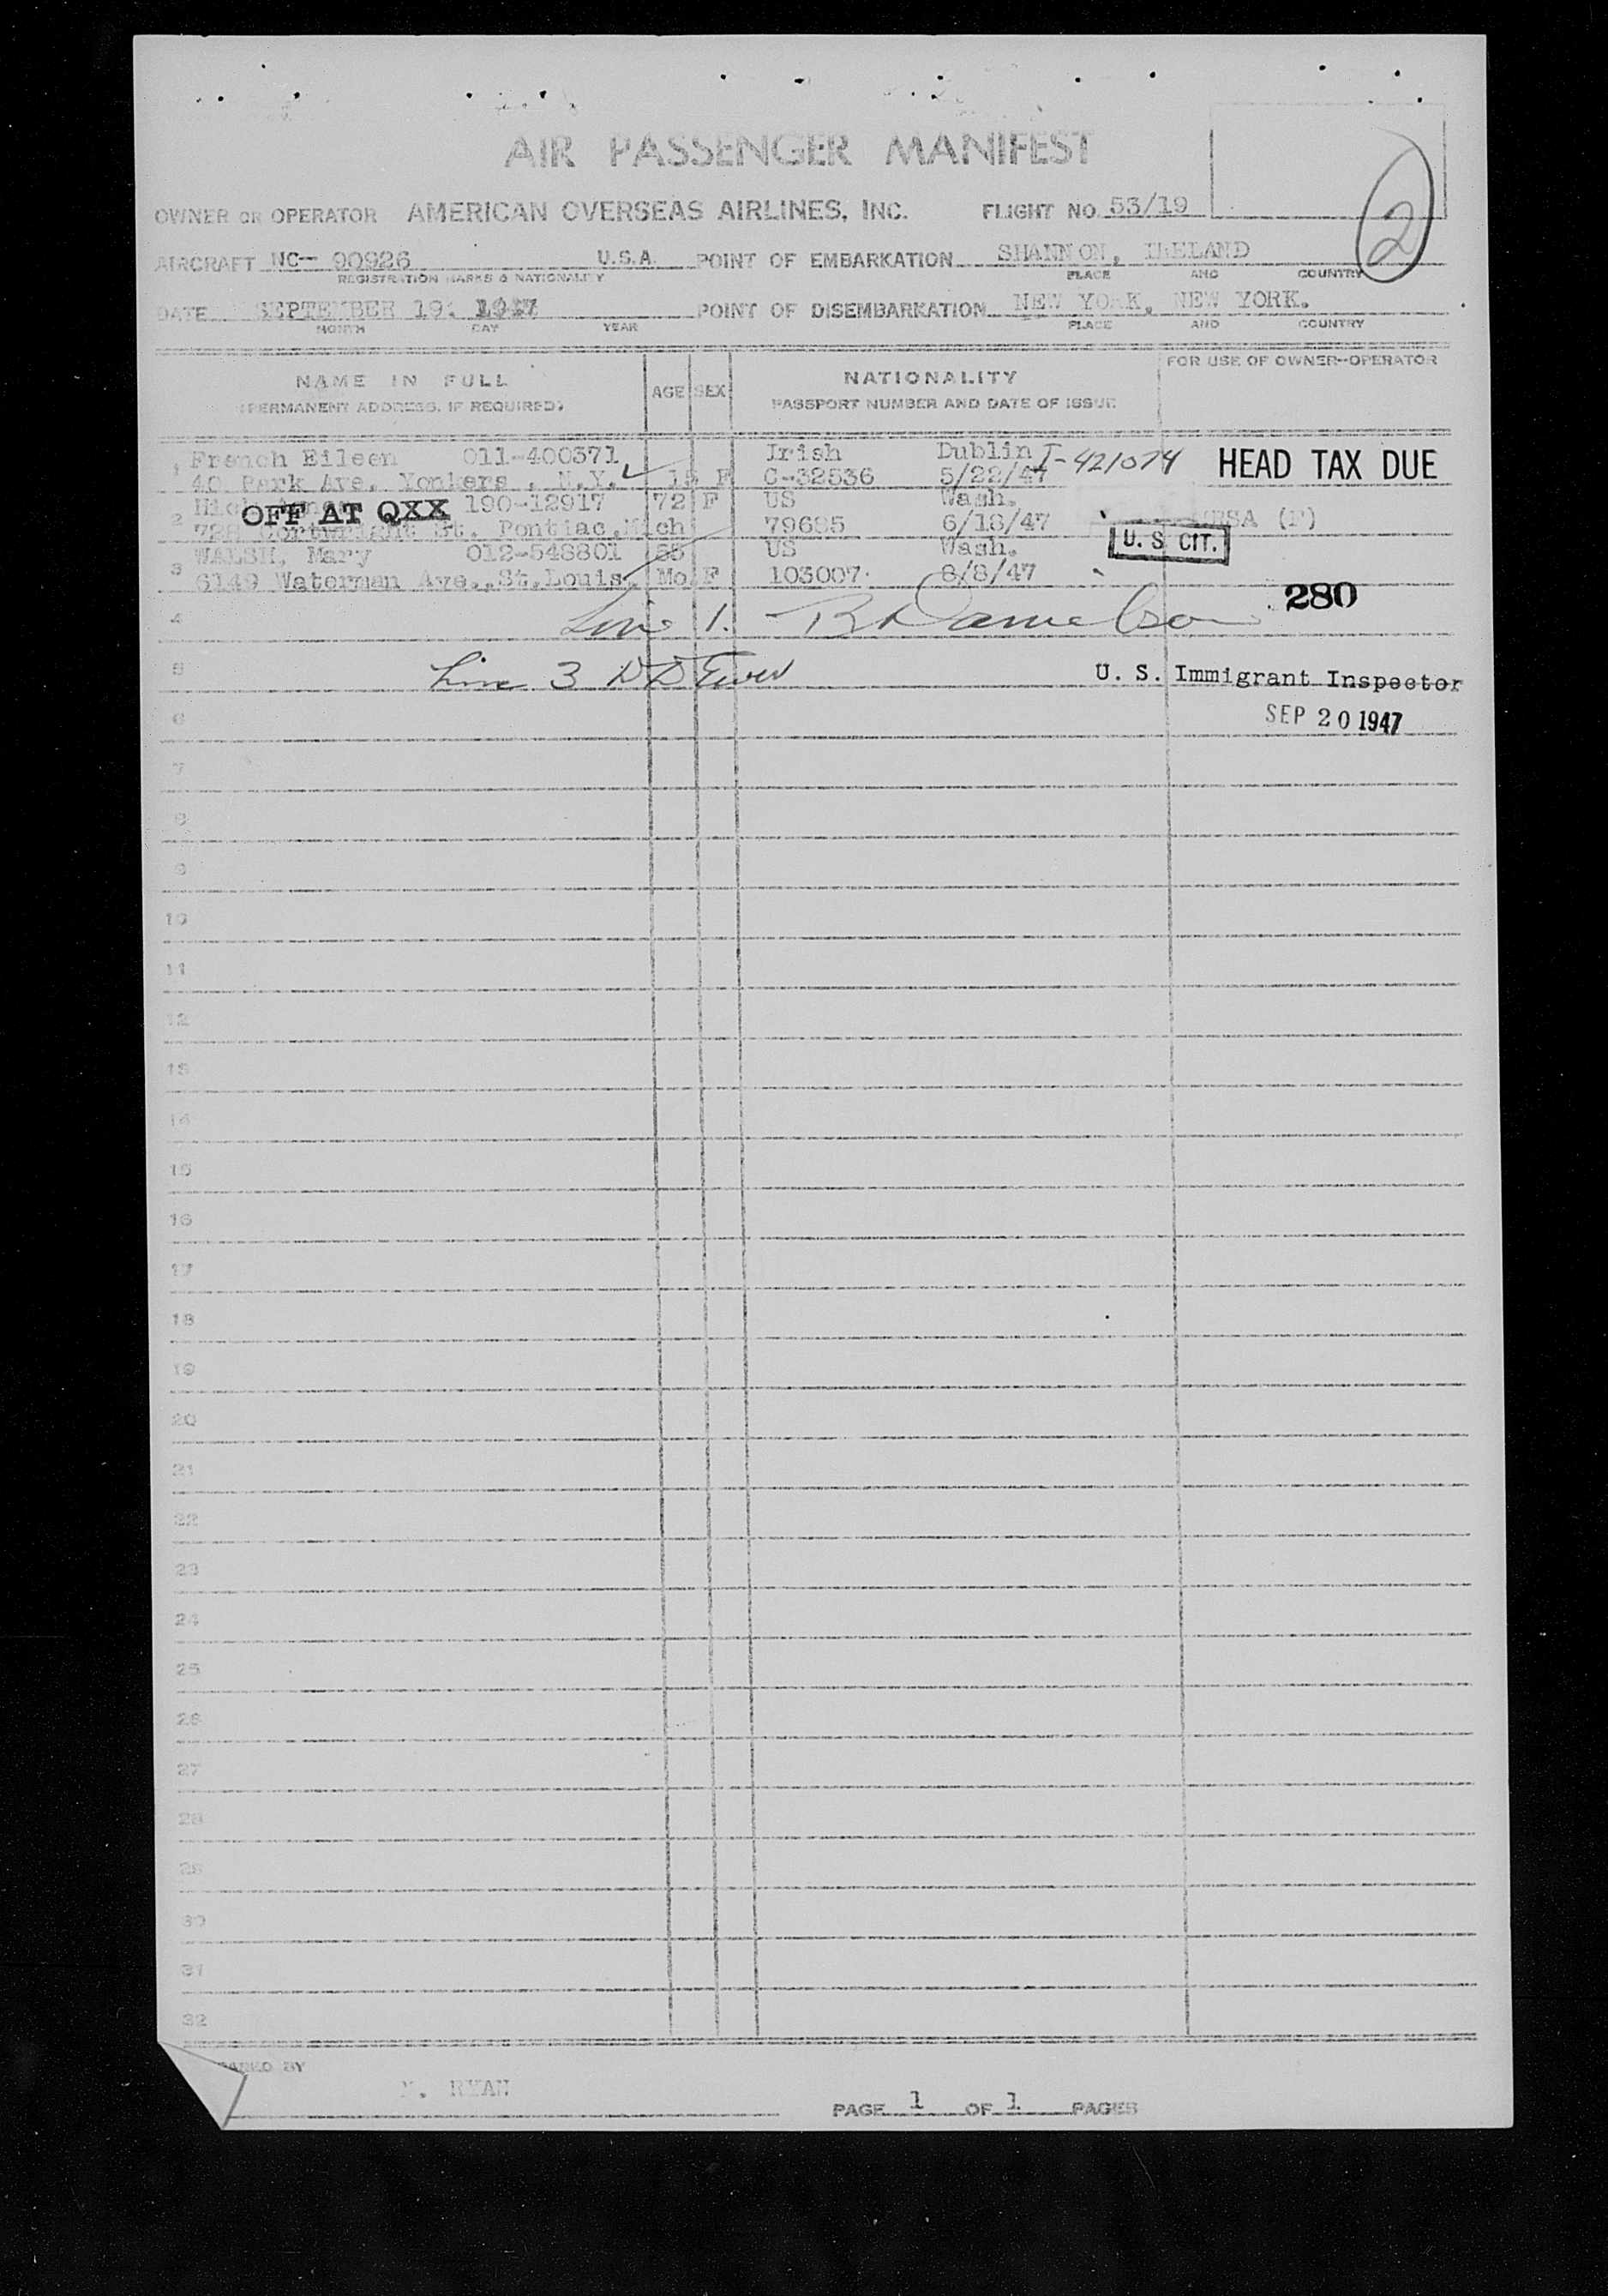 AIR PASSENGER MANIFEST
OWNER OR OPERATOR AMERICAN OVERSEAS AIRLINES, INC. FLIGHT NO 53/19
2
AIRCRAFT NC- 90926 U.S.A. POINT OF EMBARKATION SHANNON, IRELAND
REGISTRATION MARKS & NATIONALITY PLACE AND COUNTRY
DATE SEPTEMBER 19: 1947 POINT OF DISEMBARKATION NEW YORK, NEW YORK.
MONTH DAY YEAR PLACE AND COUNTRY
NAME IN FULL AGE SEX NATIONALITY FOR USE OF OWNER--OPERATOR
(PERMANENT ADDRESS, IF REQUIRED) PASSPORT NUMBER AND DATE OF ISSUE
1 French Eileen 011-400371 Irish Dublin I-421074 HEAD TAX DUE
40 Park Ave. Yonkers, N.Y. 15 F C-32536 5/22/47
2 190-12917 72 F US Wash.
OFF AT QXX
St. Pontiac, Mich 79685 6/18/47 (F)
WALSH, Mary 012-548801 US Wash. U. S. CIT.
3 6149 Waterman Ave., St. Louis, Mo. F 103007 8/8/47
280
4 Line 1. R Danielson
5 Line 3 U. S. Immigrant Inspector
SEP 20 1947
6
7
8
9
10
11
12
13
14
15
16
17
18
19
20
21
22
23
24
25
26
27
28
29
30
31
32
BY
RYAN
PAGE 1 OF 1 PAGES